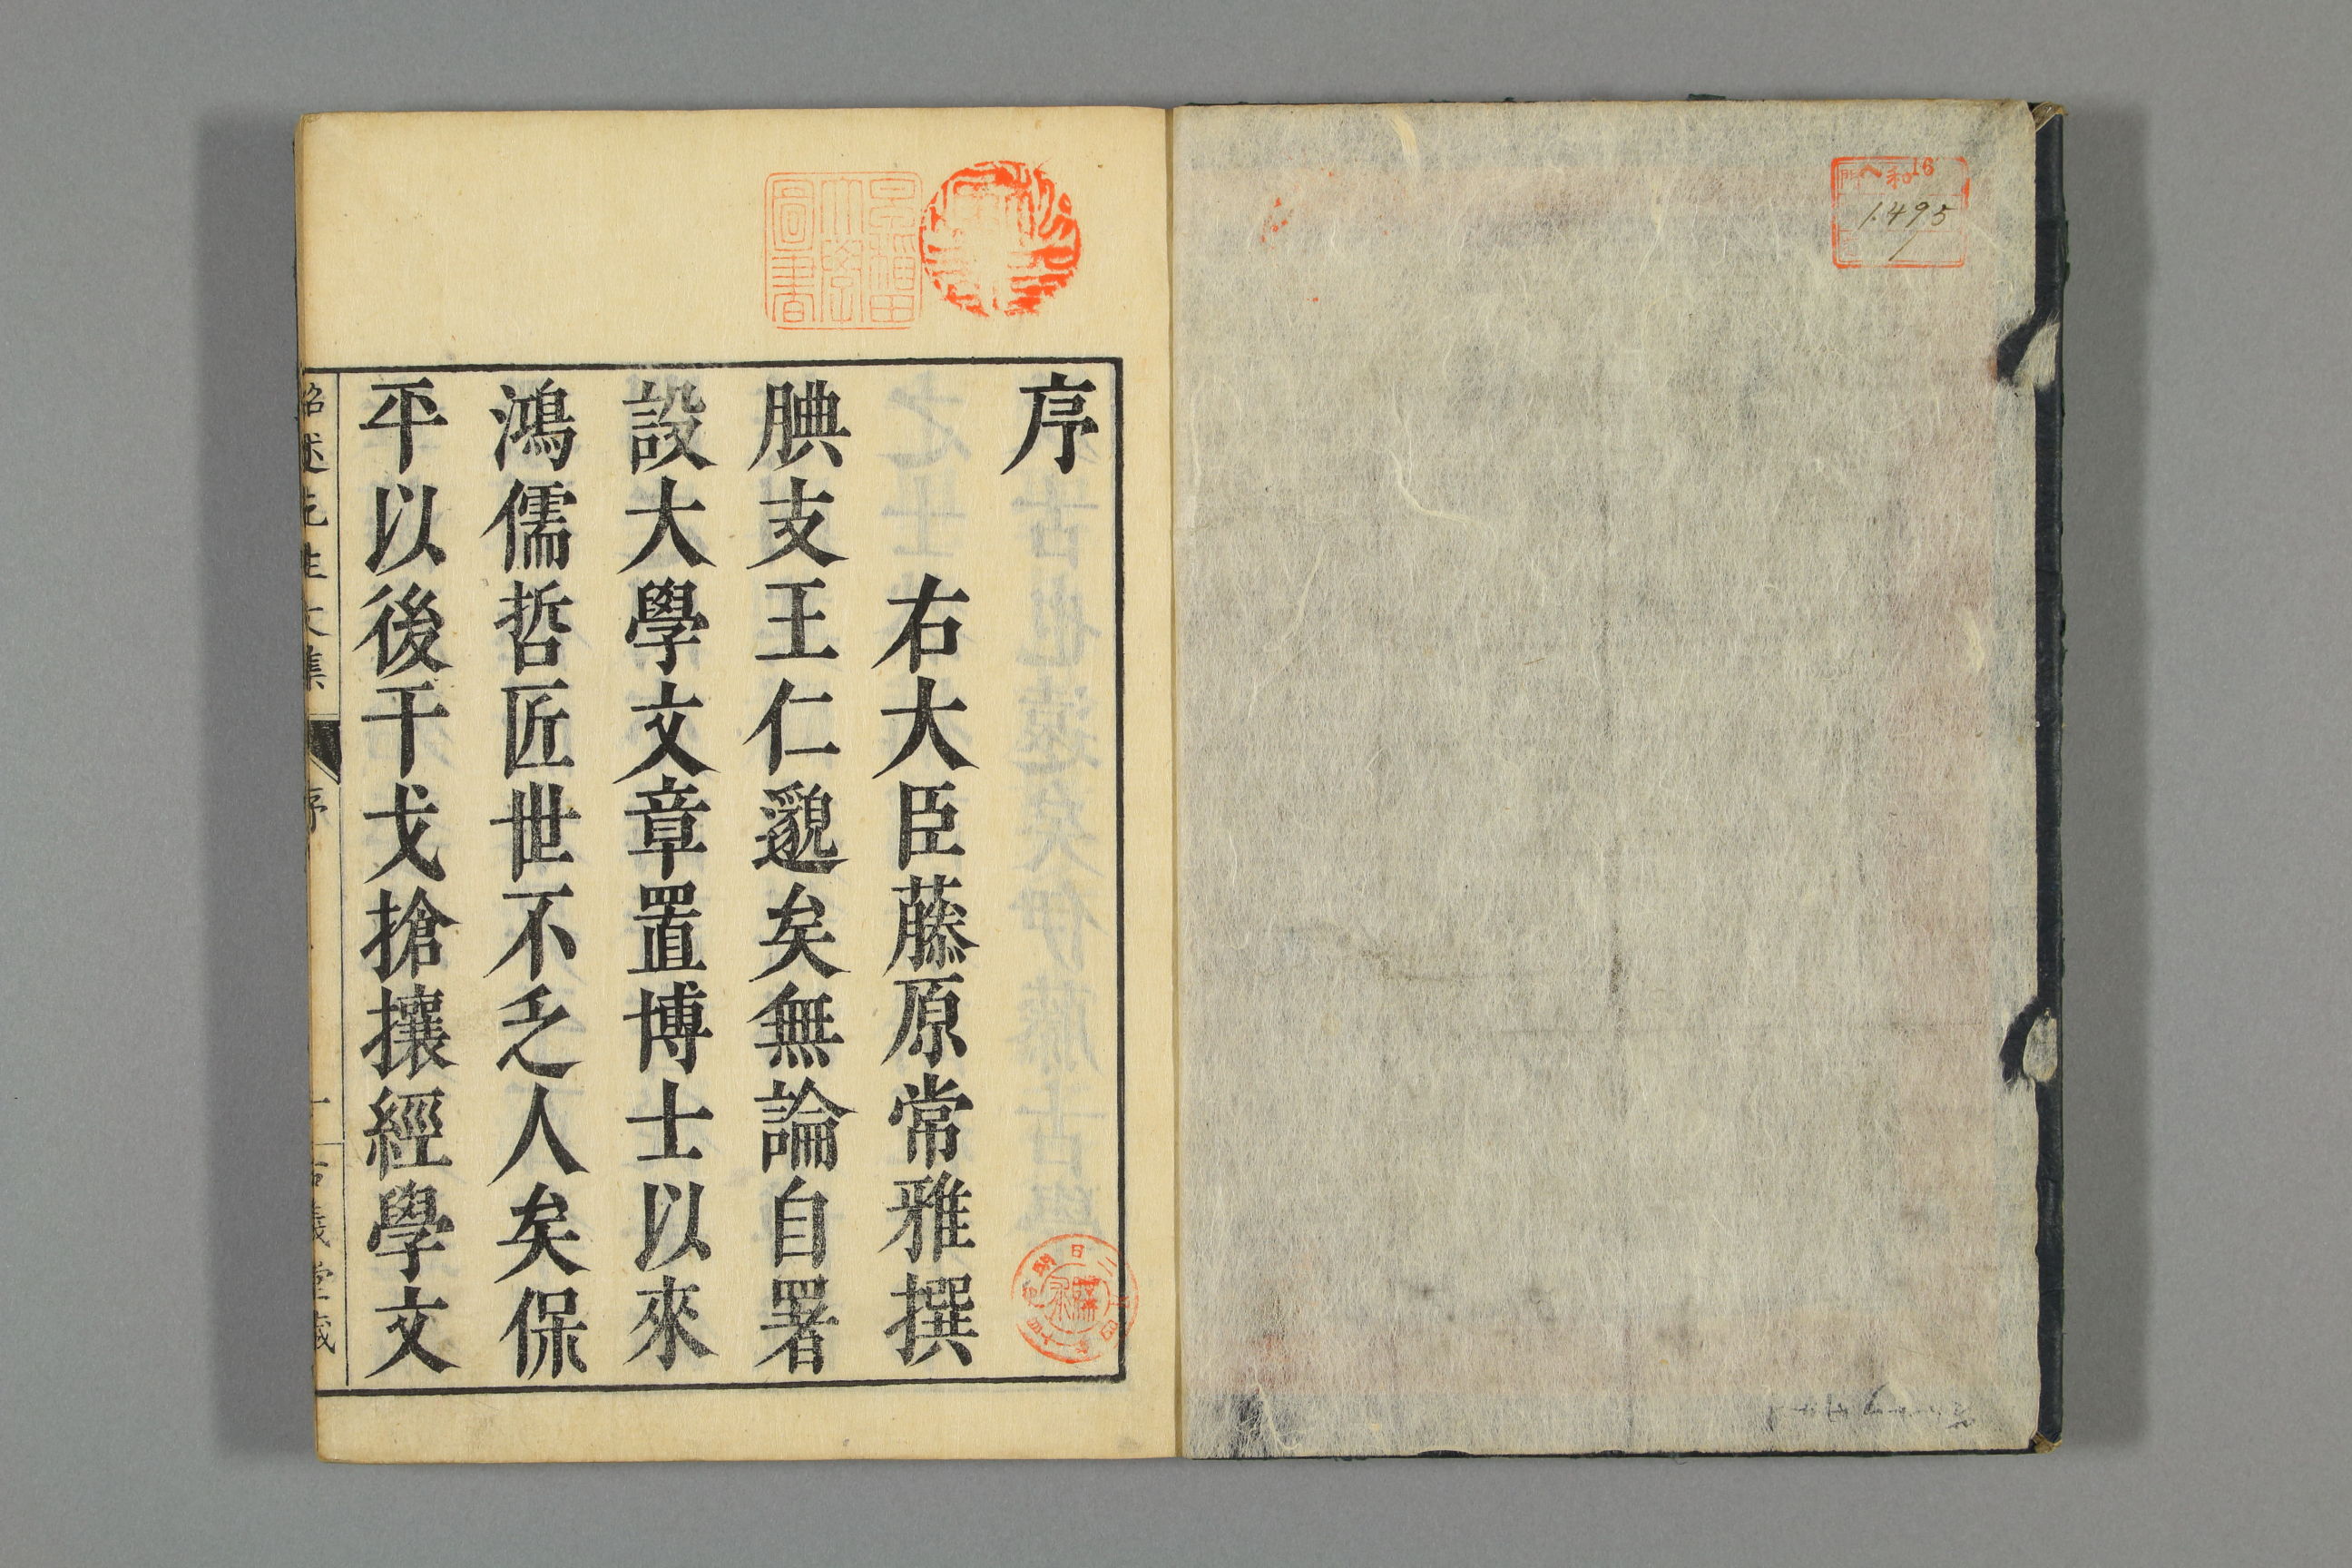 和
16
門
へ
1495
1
早稲田
大學
圖書
序
右大臣藤原常雅撰
腆支王仁邈矣無論自署
設大學文章置博士以來
鴻儒哲匠世不乏人矣保
平以後干戈搶攘經學文
紹述先生文集
序
一
古義堂藏